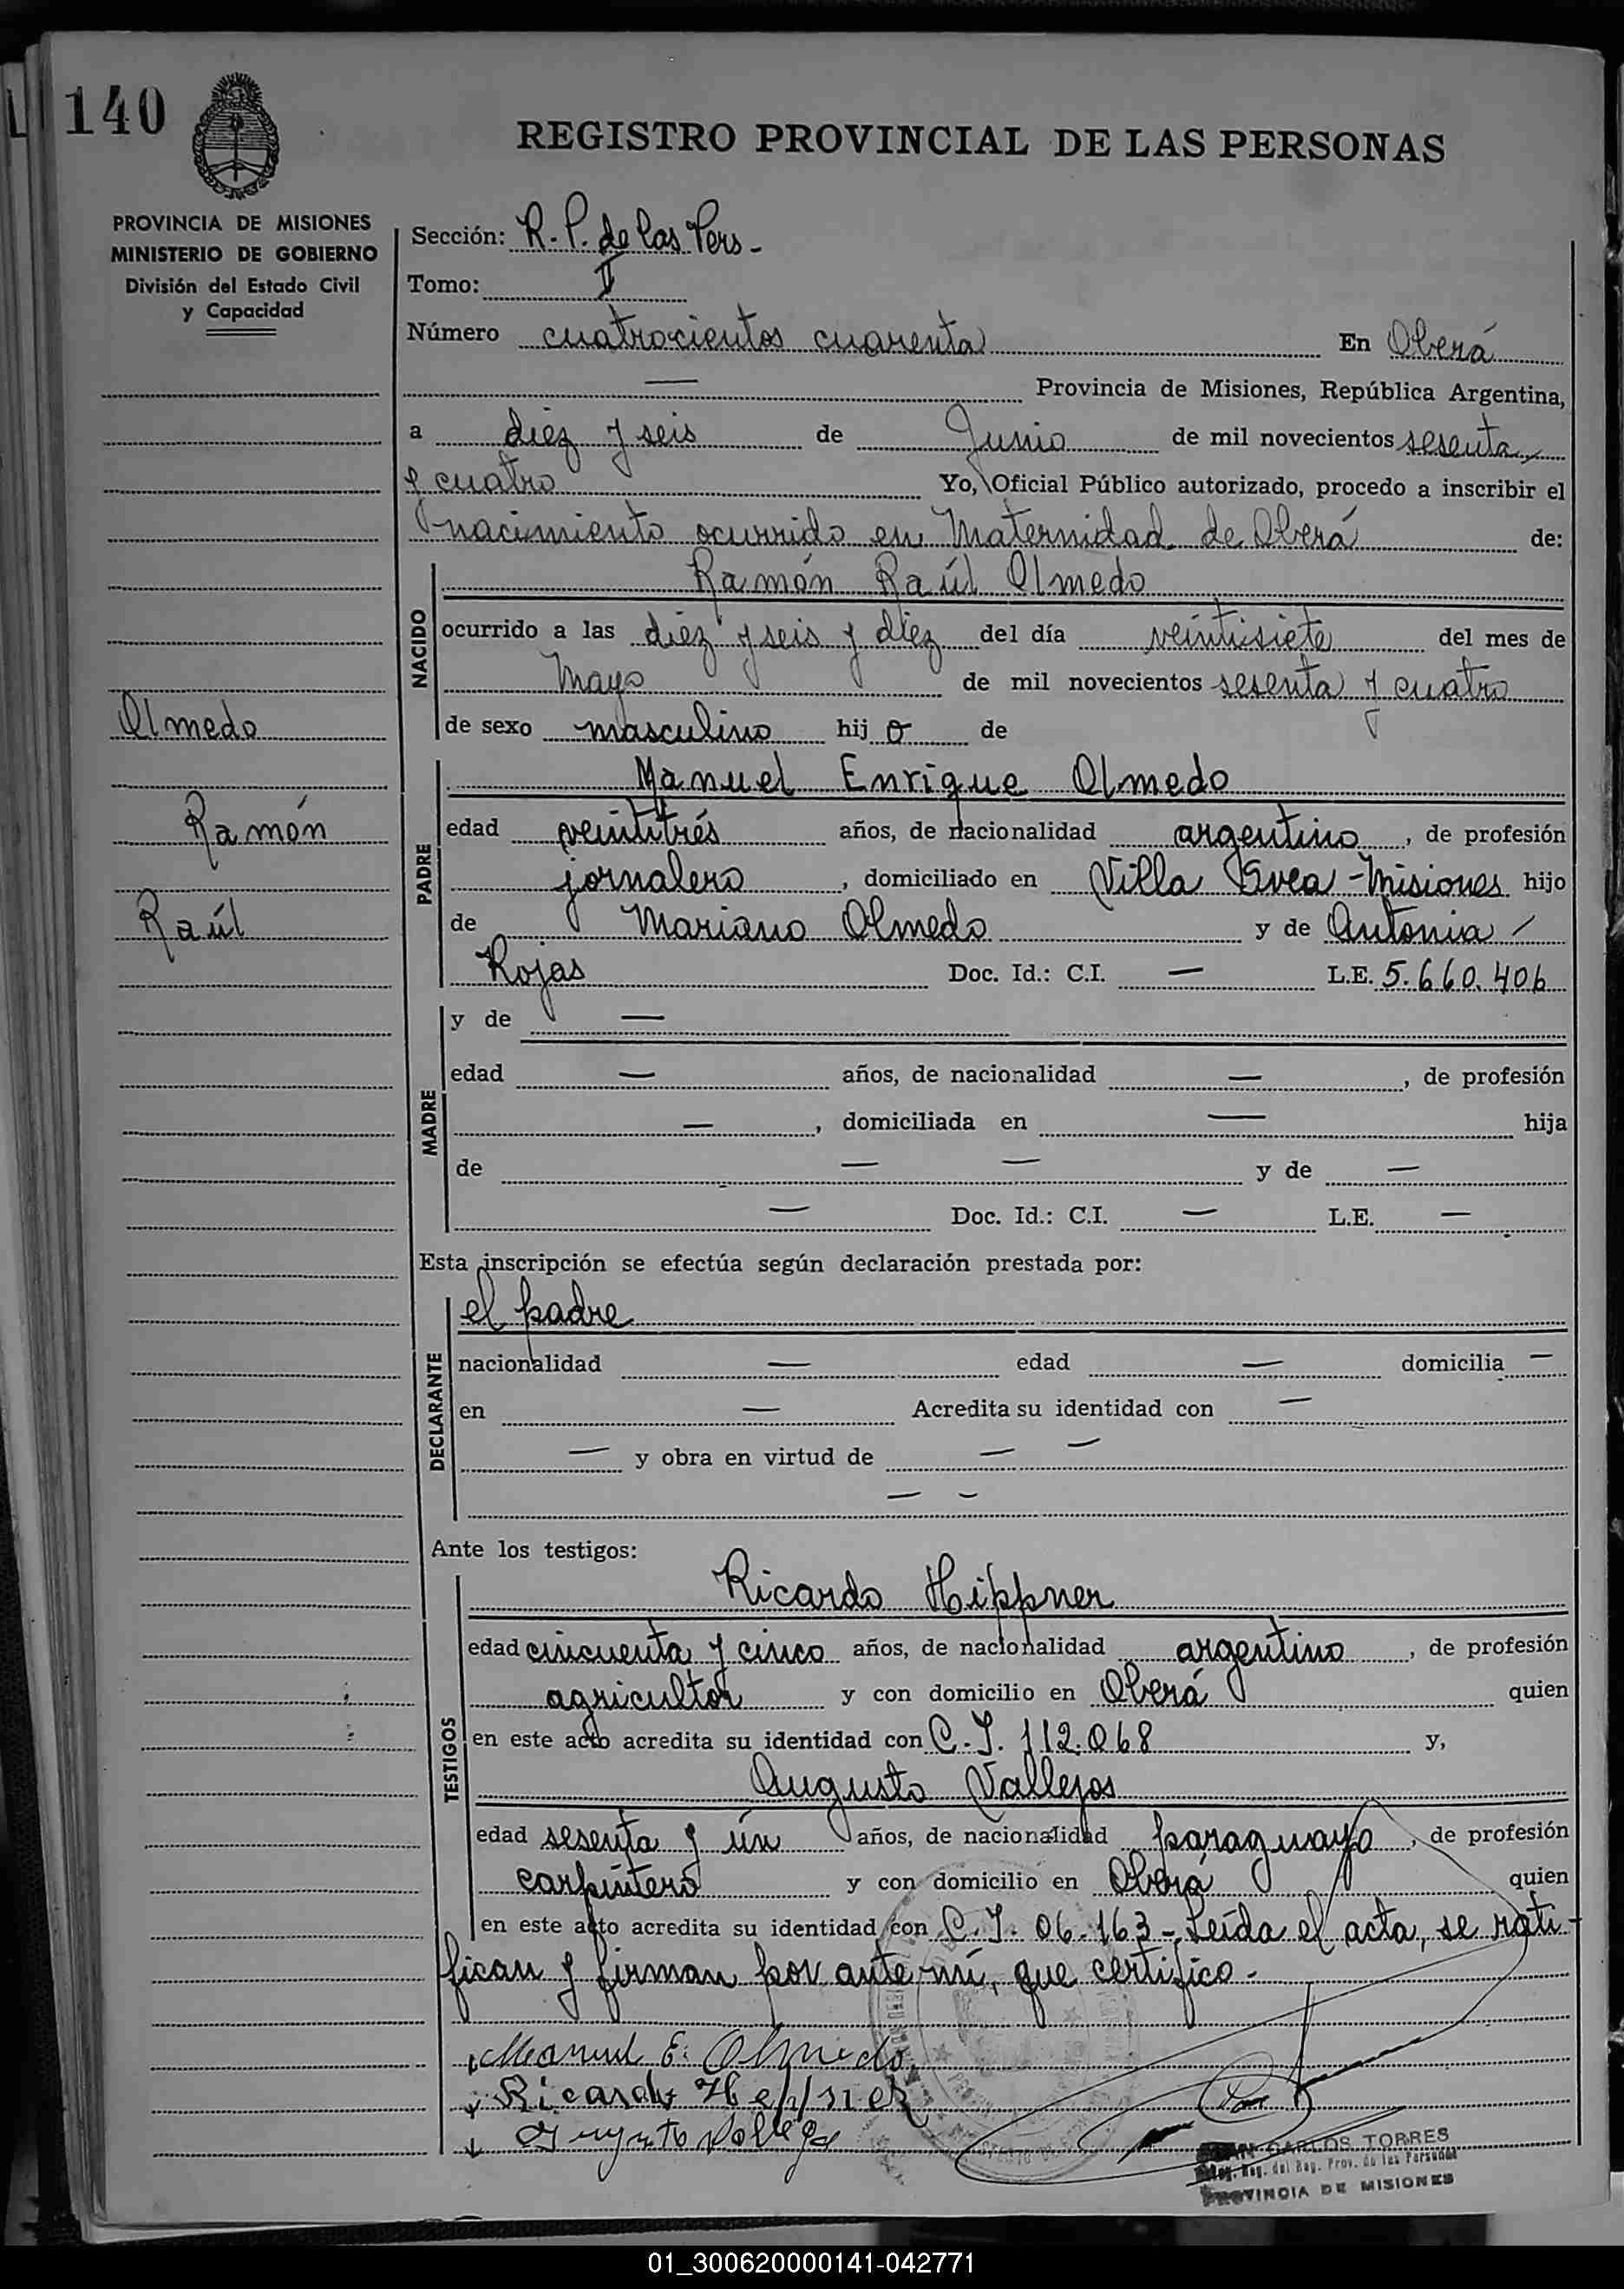 140
REGISTRO PROVINCIAL DE LAS PERSONAS
PROVINCIA DE MISIONES
MINISTERIO DE GOBIERNO
División del Estado Civil
y Capacidad
Sección: R. P. de las Pers -
Tomo: II
Número cuatrocientos cuarenta En Oberá
— Provincia de Misiones, República Argentina,
a diez y seis de Junio de mil novecientos sesenta
y cuatro Yo, Oficial Público autorizado, procedo a inscribir el
nacimiento ocurrido en Maternidad de Oberá de:
Ramón Raúl Olmedo
NACIDO
ocurrido a las diez y seis y diez del día veintisiete del mes de
Mayo de mil novecientos sesenta y cuatro
de sexo masculino hij o de
Olmedo
Ramón
Raúl
Manuel Enrique Olmedo
PADRE
edad veintitrés años, de nacionalidad argentino, de profesión
jornalero, domiciliado en Villa Svea - Misiones hijo
de Mariano Olmedo y de Antonia /
Rojas Doc. Id.: C.I. — L.E. 5.660.406
MADRE
y de —
edad — años, de nacionalidad —, de profesión
—, domiciliada en — hija
de — — y de —
— Doc. Id.: C.I. — L.E. —
Esta inscripción se efectúa según declaración prestada por:
DECLARANTE
el padre
nacionalidad — edad — domicilia —
en — Acredita su identidad con —
— y obra en virtud de — —
— –
Ante los testigos:
TESTIGOS
Ricardo Hippner
edad cincuenta y cinco años, de nacionalidad argentino, de profesión
agricultor y con domicilio en Oberá quien
en este acto acredita su identidad con C.I. 112.068 y,
Augusto Vallejos
edad sesenta y ún años, de nacionalidad paraguayo, de profesión
carpintero y con domicilio en Oberá quien
en este acto acredita su identidad con C.I. 06.163 -. Leída el acta, se rati-
fican y firman por ante mí, que certifico -
Manuel E. Olmedo
Ricardo Heppner
CARLOS TORRES
Reg. del Reg. Prov. de las Personas
PROVINCIA DE MISIONES
01_300620000141-042771